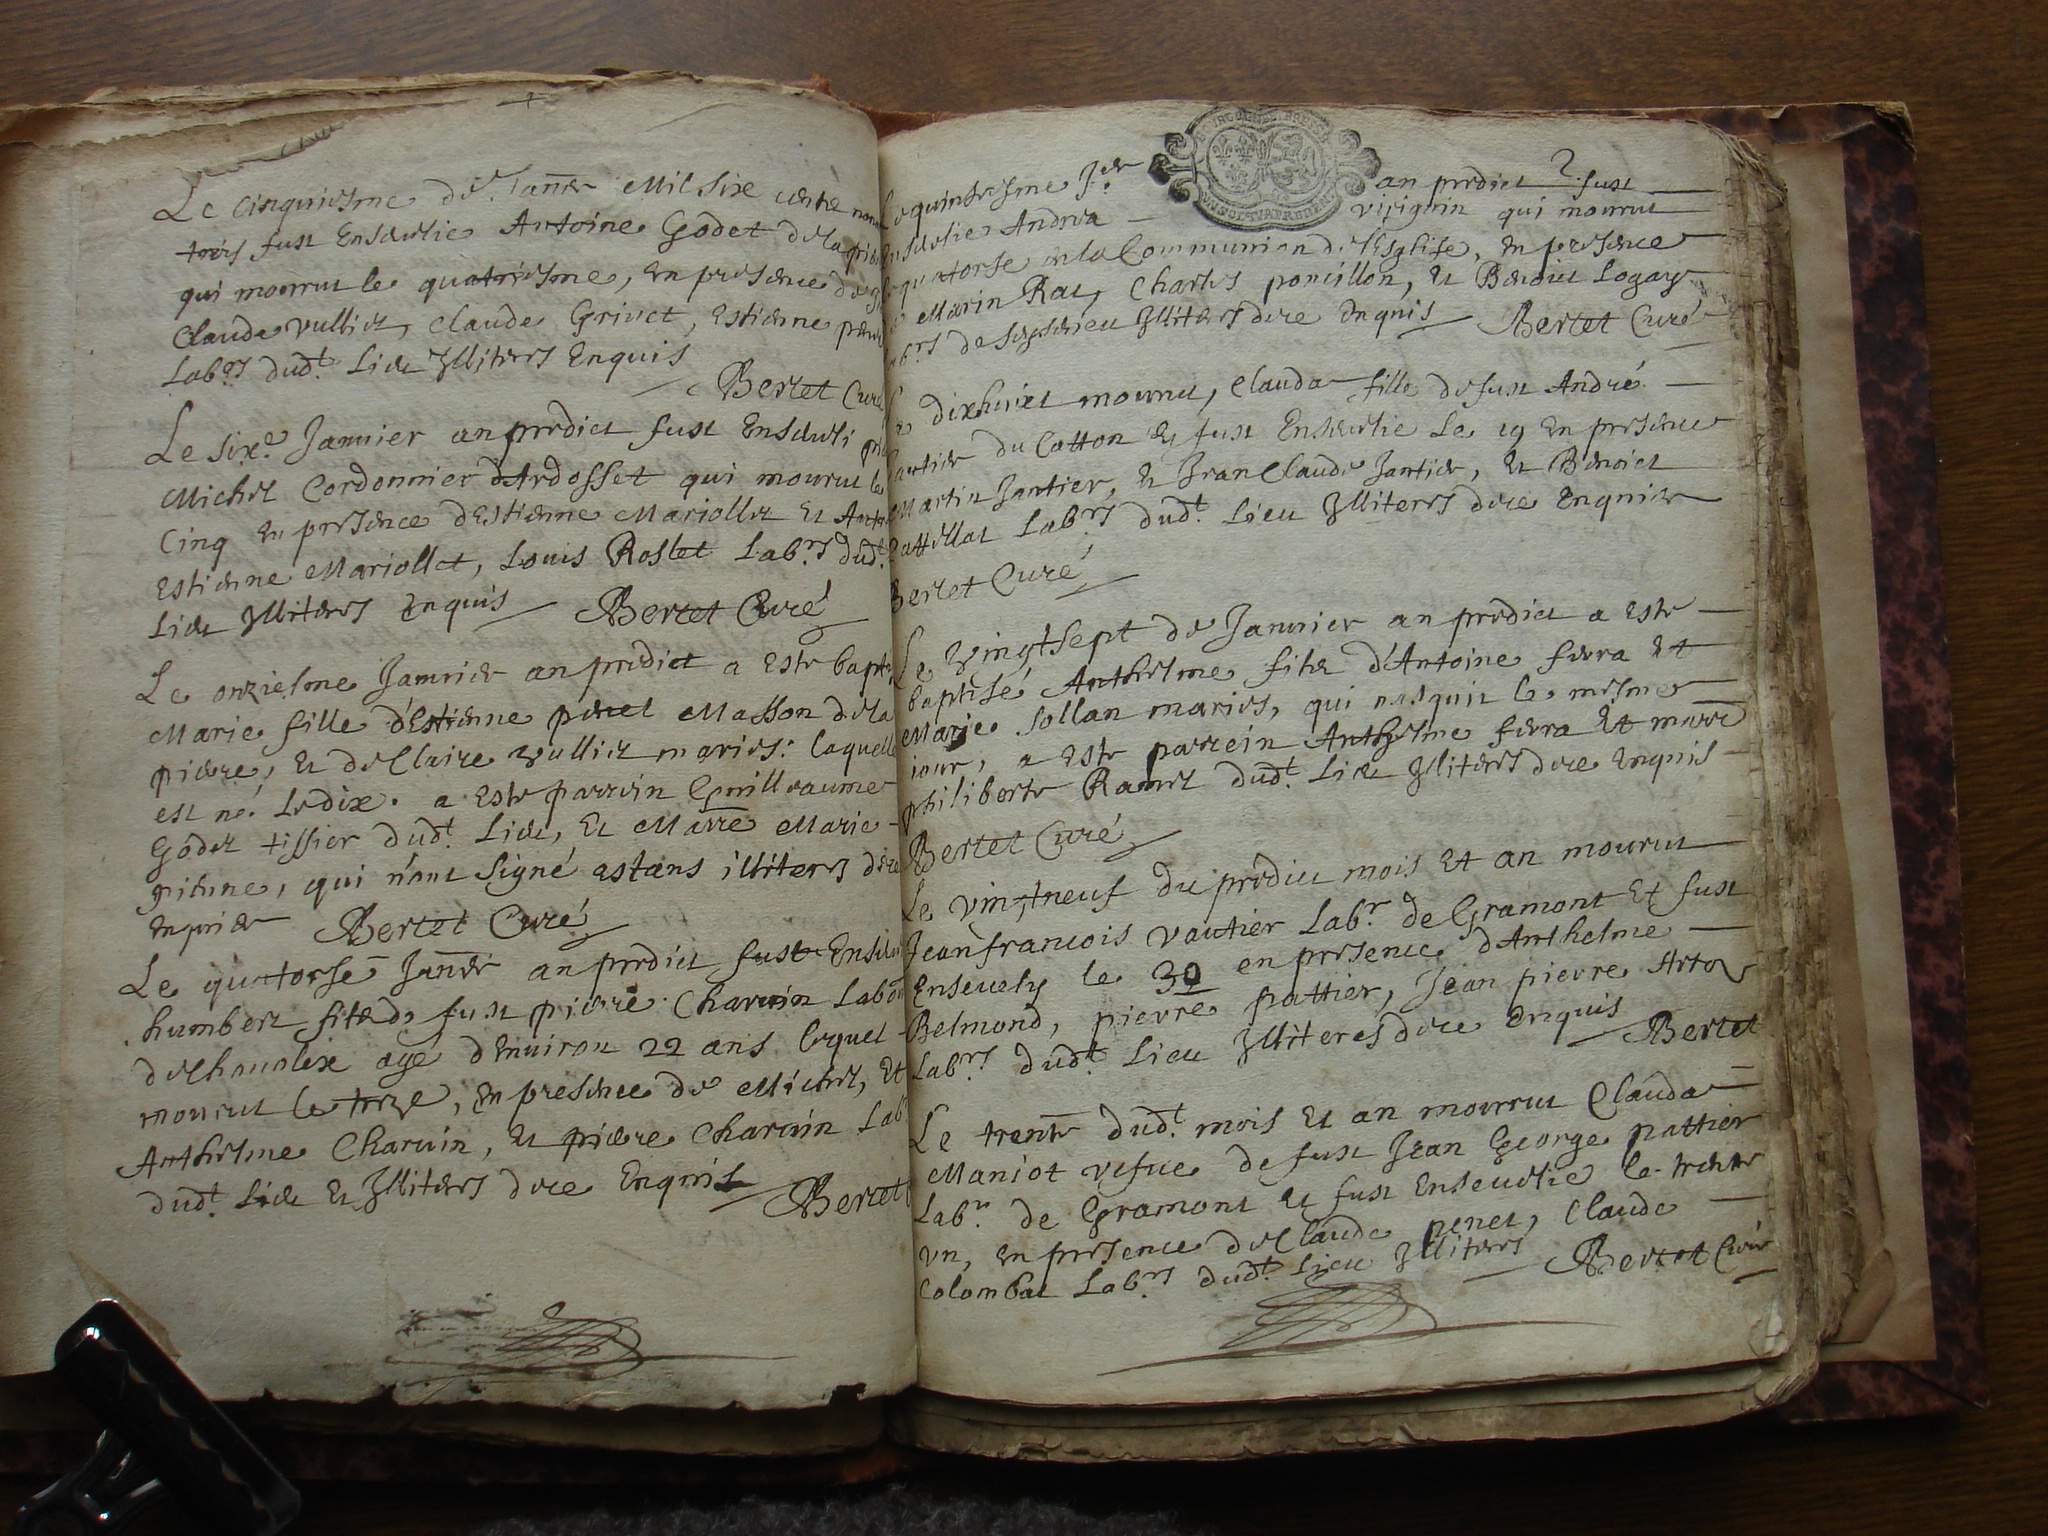 Le cinquiesme de Janer Mil six cents
trois fust Ensevelie Antoine Godet dela
qui mourut le quatriesme, en presence de
Claude vulliet, Claude Grivet, Estienne
Labrs dudt Lieu Illiters Enquis
Bertet Curé
Le sixe Janvier an predict fust Enseveli
Michel Cordonnier d'Ardosset qui mourut le
Cinq en presence d'Estienne Mariollet et
Estienne Mariollet, Louis Roslet Labrs dudt
Lieu Illiters Enquis Bertet Curé
Le onziesme Janvier an predict a este
Marie fille d'Estienne penet Masson dela
pierre, et de Claire vulliet maries: laquelle
est né le dix. a este parrein Guilleaume
Godet tissier dudt Lieu, et Marre Marie
qui n'ont Signé estans illiters de ce
enquis Bertet Curé
Le quatorse Janer an predict fust
humbert fils de fust pierre Charvin
agé d'Environ 22 ans lequel
mourut le treze, en presence de Michel, Et
Anthelme Charvin, et pierre Charvin Labrs
dudt Lieu et Illiters de ce Enquis Bertet
Le quinsiesme Jer an predict fust
Ensevelie Andrea qui mourut
quatorse en la Communion de l'Esglise, en presence
Marin Rat, Charles poncillon, et Benoict Logay
Labrs de Illiters de ce Enquis Bertet Curé
Le dixhuict mourut, Clauda fille de fust André
Jantier du Catton et fust Ensevelie Le 19 En presence
Martin Jantier, et Jean Claude Jantier, et Benoict
Labrs dudt Lieu Illiteres de ce Enquis
Bertet Curé
Le vingtsept de Janvier an predict a este
baptisé Anthelme fils d'Antoine ferra et
Marie Sollan maries, qui nasquit le mesme
iour, a este parrein Anthelme ferra et marre
philiberte Ramet dudt Lieu Illiters de ce Enquis
Bertet Curé
Le vingtneuf du predict mois et an mourut
Jeanfrancois vautier Labr de Gramont Et fust
Ensevely le 30 en presence d'Anthelme
Belmond, pierre pattier, Jean pierre
Labrs dudt Lieu Illiteres de ce Enquis Bertet
Le trente dudt mois et an mourut Clauda
Maniot vefve de fust Jean George pattier
Labr de Gramont et fust Ensevelie le trente
un, en presence de Claude penet, Claude
Colombat Labrs dudt Lieu Illiters Bertet Curé